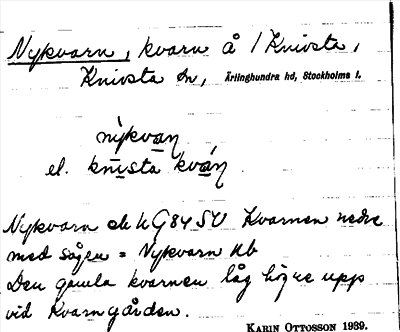 Nykvarn, kvarn å / Knivsta,
Knivsta sn, Ärlinghundra hd, Stockholms l.
nỳkvaṉ
el. knista kváṉ
Nykvarn ek hG84SV Kvarnen nedre
med sågen = Nykvarn Hb
Den gamla kvarnen låg högre upp
vid Kvarngården.
KARIN OTTOSSON 1939.